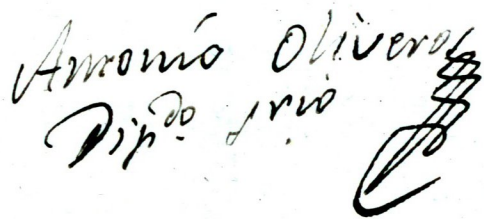 Antonio Oliveros
Dip.do Srio